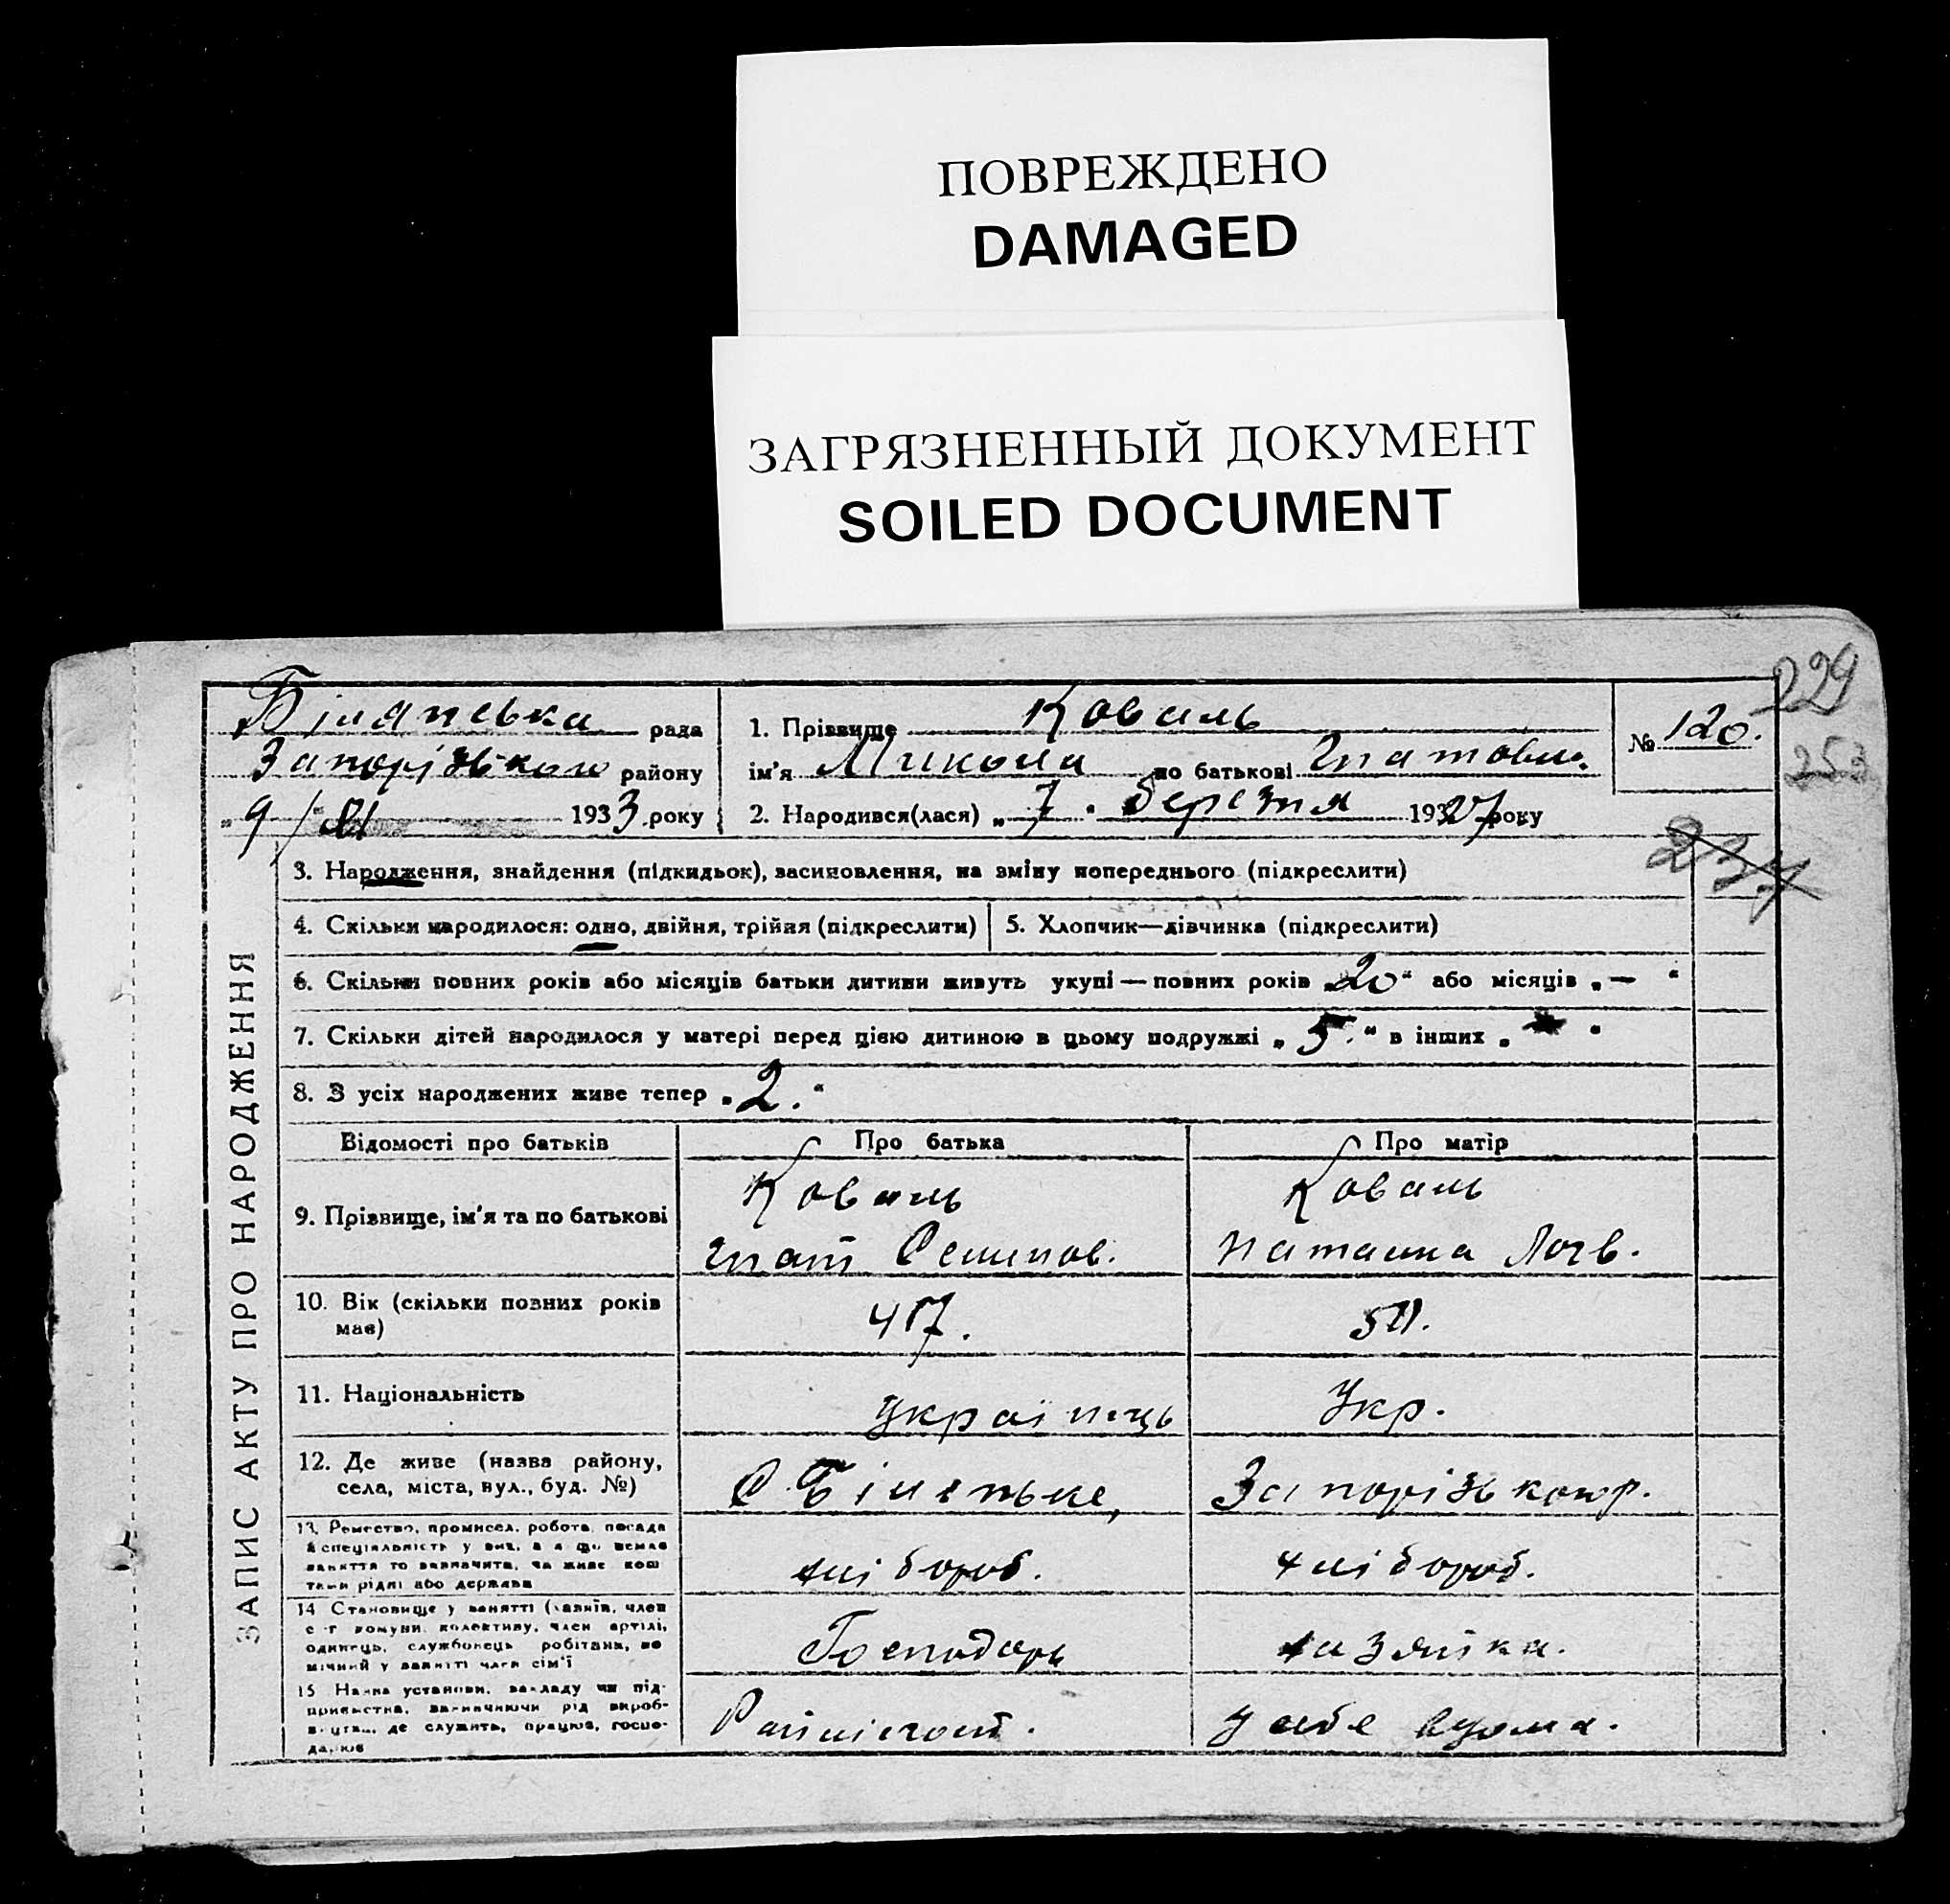 ПОВРЕЖДЕНО
DAMAGED
ЗАГРЯЗНЕННЫЙ ДОКУМЕНТ
SOILED DOCUMENT
229
253
237
Білянська рада
Запорізького району
"9/ 1933 року
1. Прізвище Коваль
ім'я Микола по батькові Гнатови.
№ 120.
2. Народився(лася) „7" березня 1927 року
ЗАПИС АКТУ ПРО НАРОДЖЕННЯ
3. Народження, знайдення (підкидьок), засиновлення, на зміну попереднього (підкреслити)
4. Скільки народилося: одно, двійня, трійня (підкреслити)
5. Хлопчик—дівчинка (підкреслити)
6. Скільки повних років або місяців батьки дитини живуть укупі — повних років „20" або місяців „—"
7. Скільки дітей народилося у матері перед цією дитиною в цьому подружжі „5." в інших „ "
8. З усіх народжених живе тепер „2."
Відомості про батьків Про батька Про матір
9. Прізвище, ім'я та по батькові
Коваль Коваль
Гнат Семенов. Наталка Логв.
10. Вік (скільки повних років має) 47.
11. Національність Українець Укр.
12. Де живе (назва району, села, міста, вул., буд. №) С. Біленьке, Запорізького р.
13. Ремество, промисел, робота, посада й спеціяльність у них, а якщо немає заняття то зазначити, чи живе коштами рідні або держави хлібороб. хлібороб.
14. Становище у занятті (хазяїн, член с.-г комуни, колективу, член артілі, одинець, службовець, робітник, помічний у занятті член сім'ї Господарь хазяйка.
15. Назва установи, закладу чи підприємства, зазначаючи рід виробництва, де служить, працює, господарює у себе вдома.